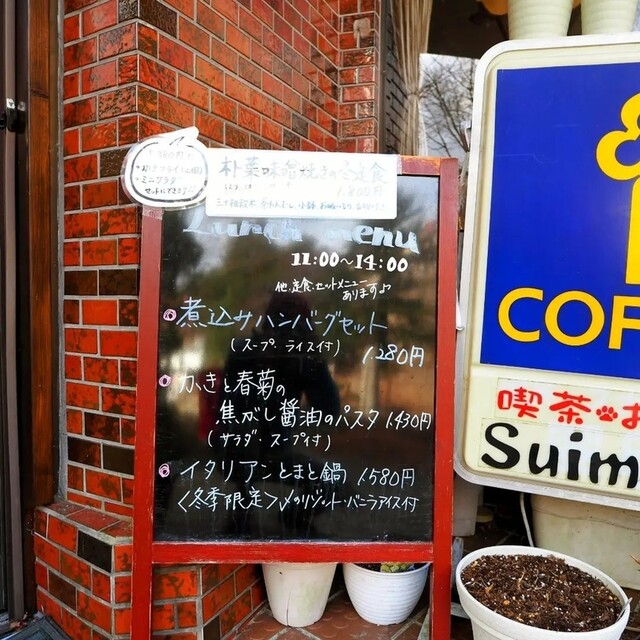 ・カキフライ(2個)
・ミニグラタン
朴葉味噌焼きの定食
1,800円
Lunch menu
11:00〜14:00
他、定食、セットメニュー
あります♪
煮込みハンバーグセット
(スープ、ライス付)
1,280円
かきと春菊の
焦がし醤油のパスタ 1,430円
(サラダ・スープ付)
イタリアンとまと鍋 1,580円
<冬季限定>〆のリゾット・バニラアイス付
COF
喫茶
Suim